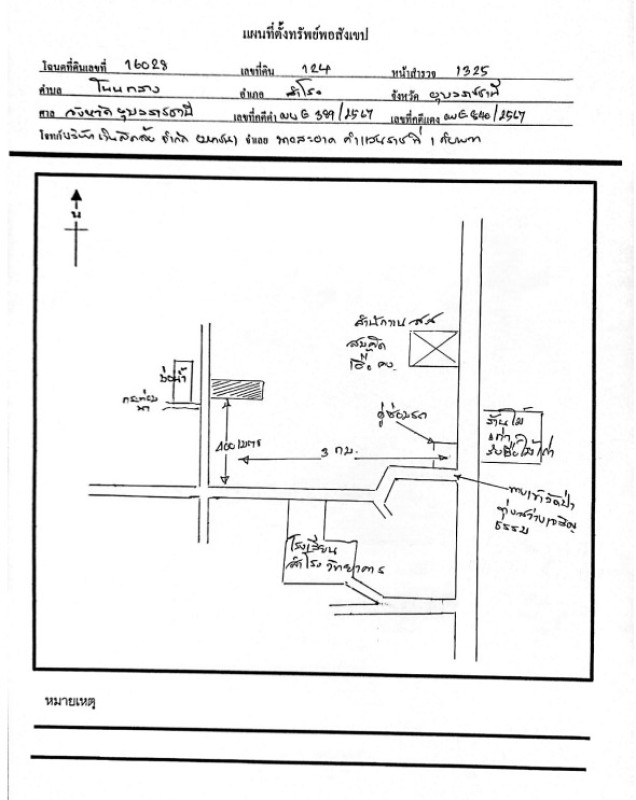 แผนที่ตั้งทรัพย์พอสังเขป
โฉนดที่ดินเลขที่ 16028 เลขที่ดิน 124 หน้าสำรวจ 1325
ตำบล โนนกลาง อำเภอ สำโรง จังหวัด อุบลราชธานี
ศาล จังหวัดอุบลราชธานี เลขที่คดีดำ ผบE 389/2567 เลขที่คดีแดง ผบE 840/2567
โจทก์ บริษัท เงินติดล้อ จำกัด (มหาชน) จำเลย ที่ 1
น
สำนักงาน สส
สมคิด
เชื้อ คง
บ่อน้ำ
กระท่อม
นา
400 เมตร
3 กม.
อู่ซ่อมรถ
ร้านไม้
เก่า
รับซื้อไม้เก่า
ทางเข้าวัดป่า
ทุ่งสว่างเจริญ
ธรรม
โรงเรียน
สำโรงวิทยาคาร
หมายเหตุ